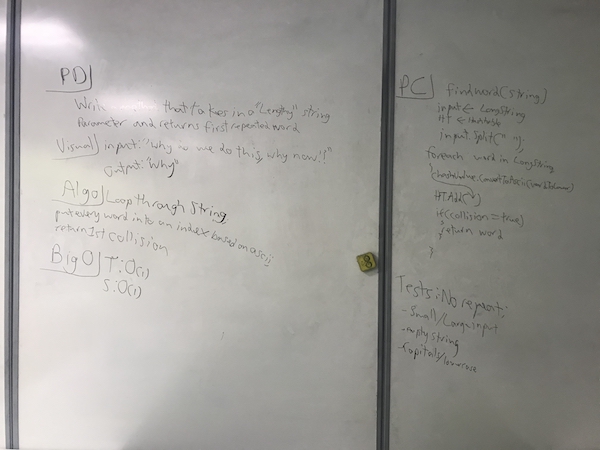 PD
Write that takes in a "Lengthy" string
Parameter and returns first repeated word
Visual input: "Why do we do this, why now!?"
Output: "Why"
Algo Loop through String
put every word into an index based on ascii
return 1st collision
Big O T: O(1)
S: O(1)
PC findword(string)
input ← LongString
HT ← Hashtable
input.split(" ");
foreach word in LongString
{
HTAdd( )
if(collision = true)
{
return word
}
}
Tests: No repeat;
- Small/Large input
- empty string
- Capitals/lowercase